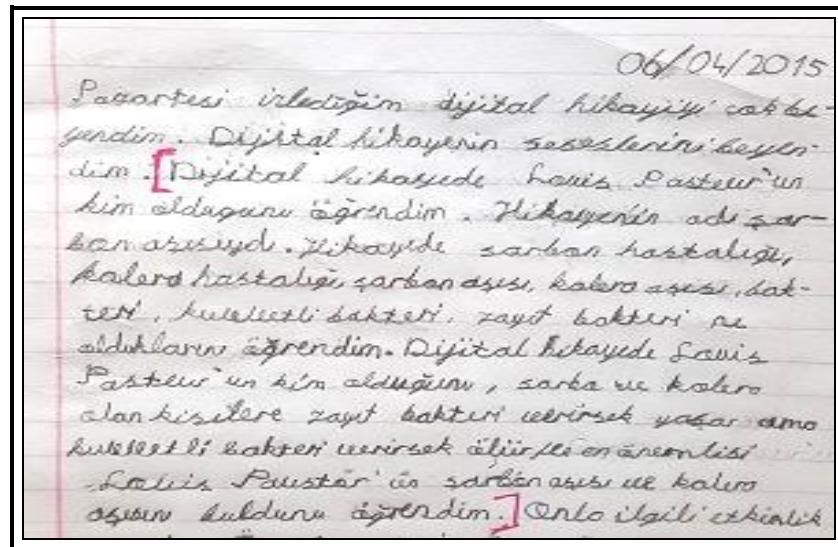 06/04/2015
Pazartesi izlediğim dijital hikayiyi çok be-
yendim. Dijital hikayenin seseslerini beyen-
dim. [Dijital hikayede Louis Pasteur'un
kim oldugunu öğrendim. Hikayenin adı şar-
bon aşısıydı. Hikayede sarbon hastalığı,
kolera hastalığı, şarbon aşısı, kolera aşısı, bak-
teri, kuvvetli bakteri, zayıf bakteri ne
olduklarını öğrendim. Dijital hikayede Louis
Pasteur'un kim olduğunu, sarbo ve kolera
olan kişilere zayıf bakteri verirsek yaşar ama
kuvvetli bakteri verirsek ölür en önemlisi
Louis Paustör'ün sarbon aşısı ve kolera
aşısını buldunu öğrendim.] Onlo ilgili etkinlik